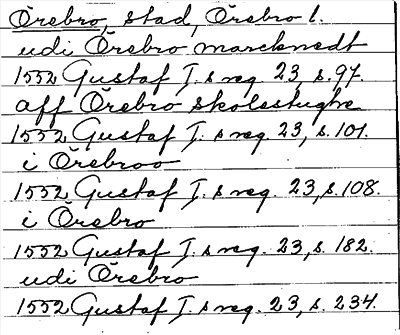 Örebro, stad, Örebro l.
udi Örebro marcknedt
1552 Gustaf I.s reg. 23, s. 97.
aff Örebro skolestughe
1552 Gustaf I.s reg. 23, s. 101.
i Örebroo
1552 Gustaf I.s reg. 23, s. 108.
i Örebro
1552 Gustaf I.s reg. 23, s. 182.
udi Örebro
1552 Gustaf I.s reg. 23, s. 234.